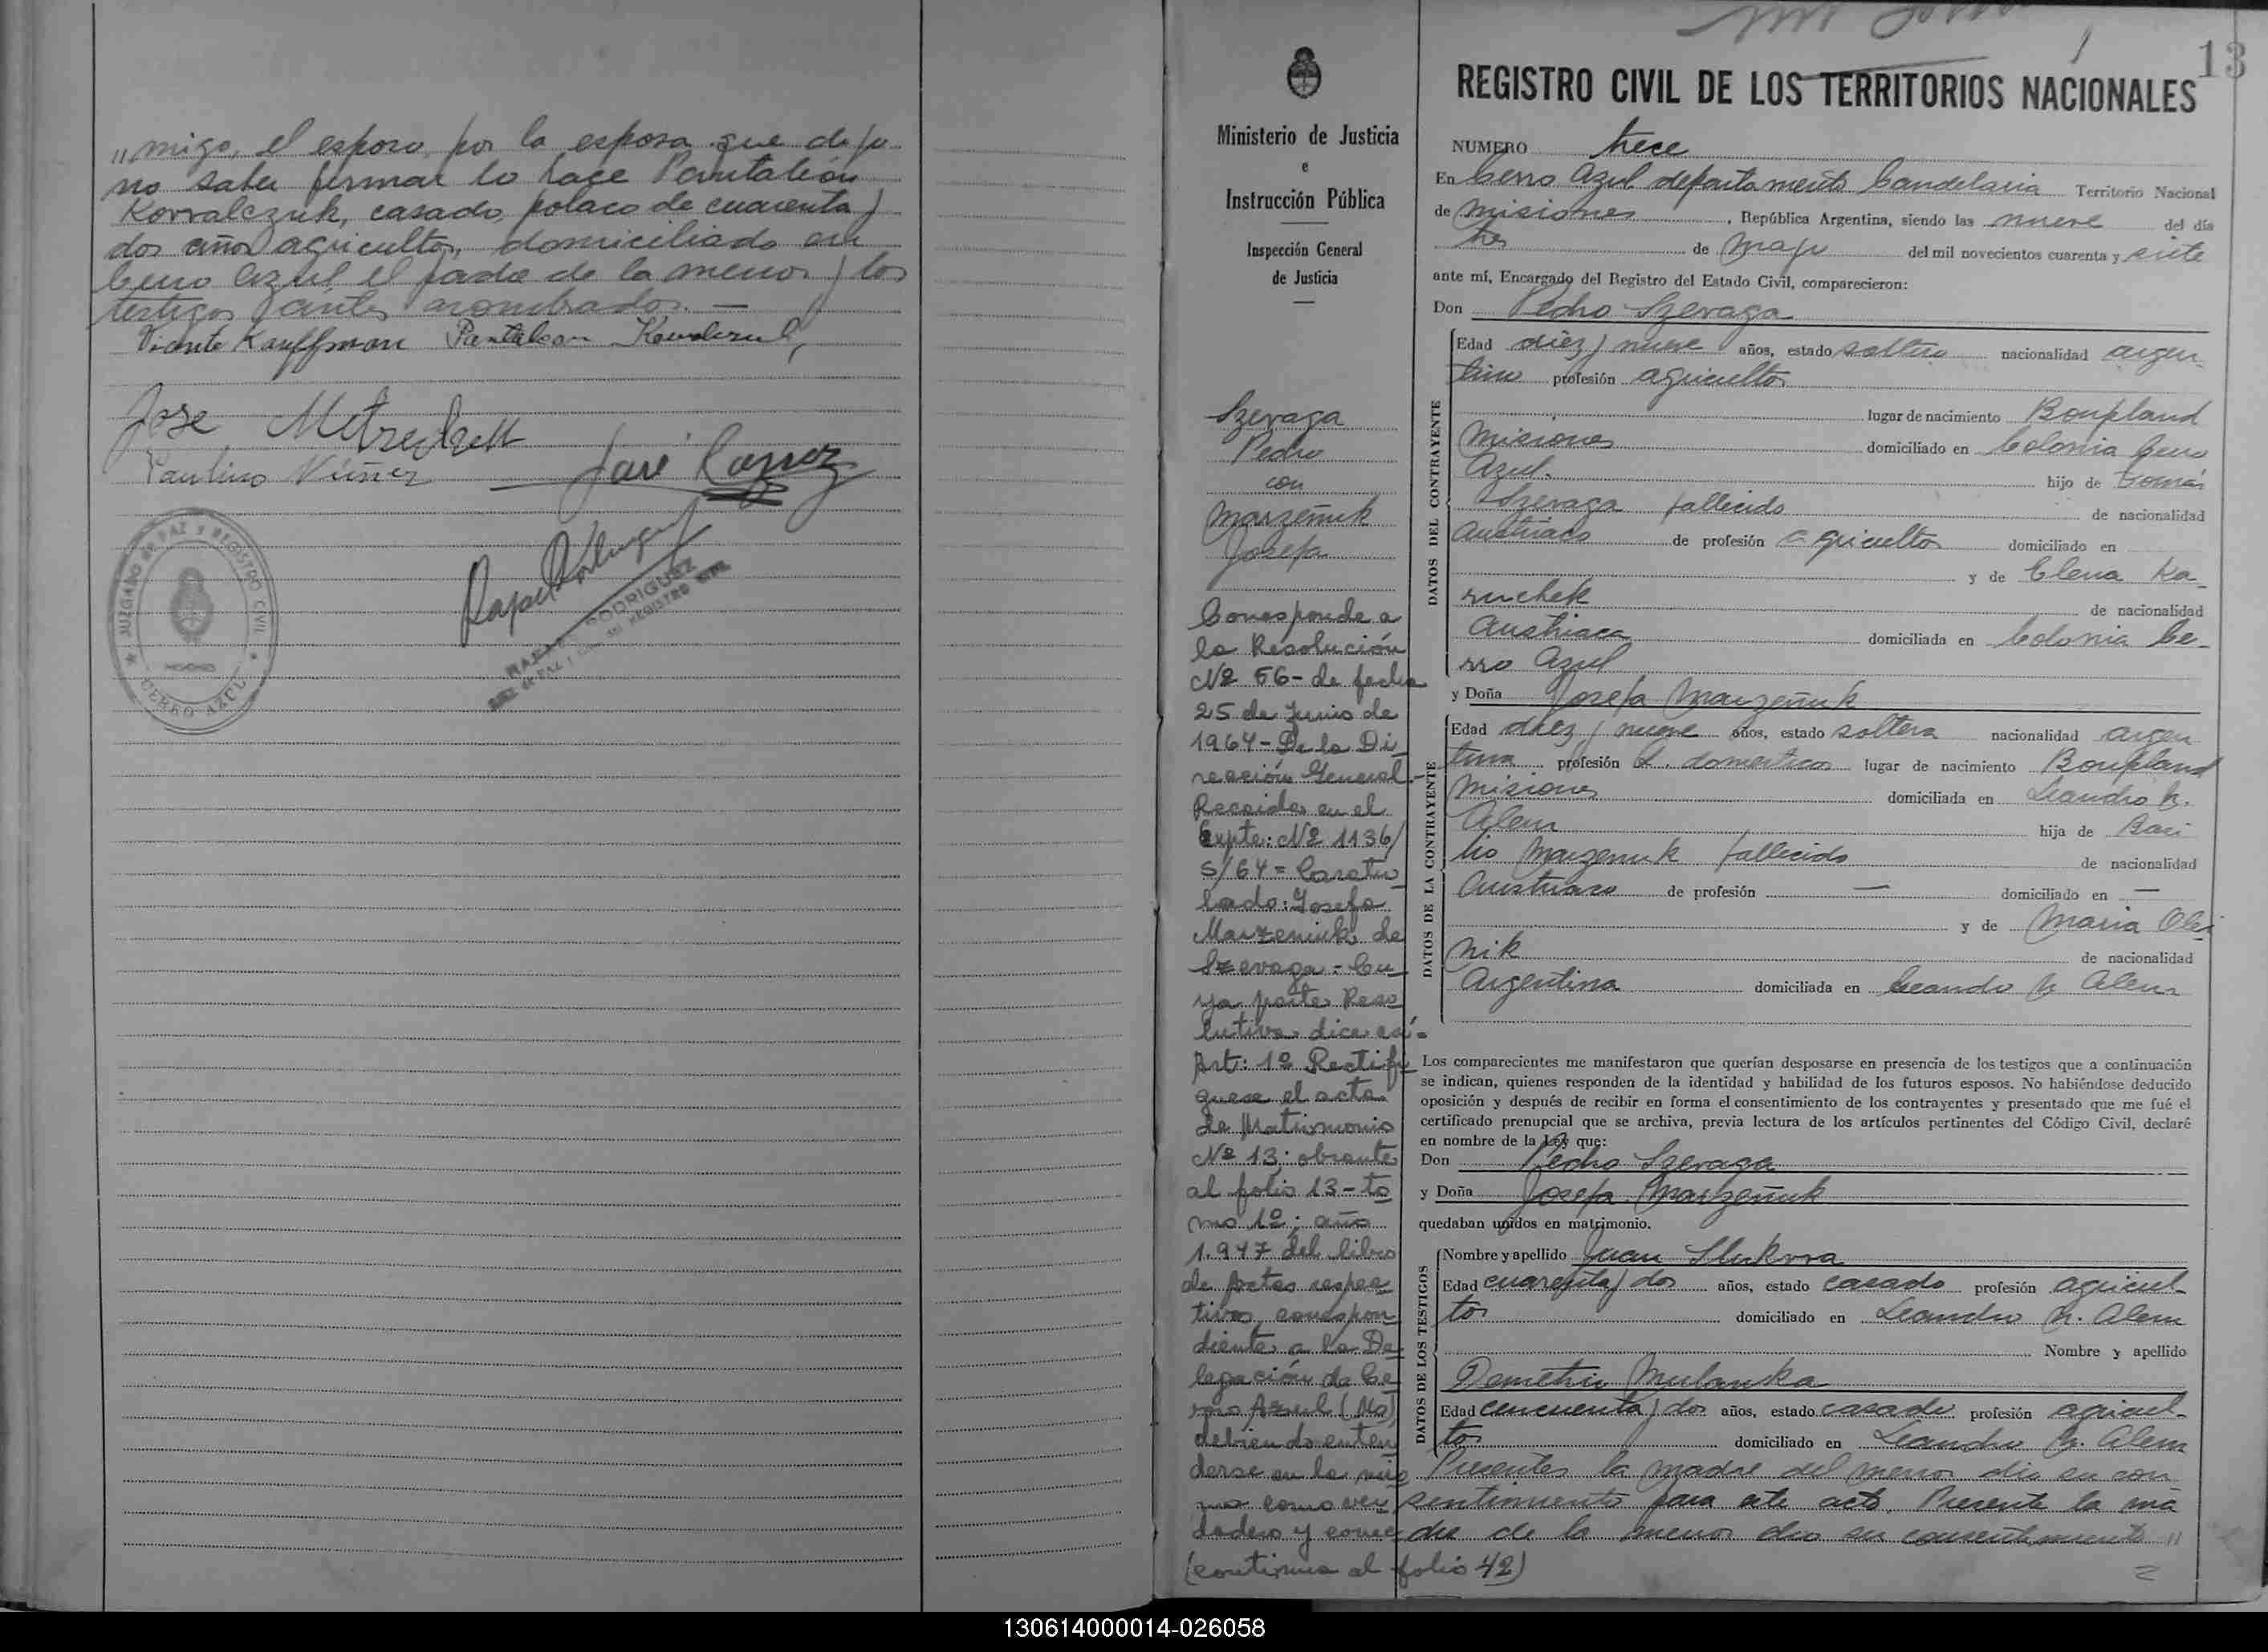 "migo, el esposo, por la esposa que dijo
no saber firmar lo hace Pantaleón
Korralczuk, casado, polaco de cuarenta y
dos años agricultor, domiciliado en
Cerro Azul el padre de la menor y los
testigos antes nombrados. —
Vicente Kauffman Pantaleon
Jose
Paulino Núñez
JUZGADO DE PAZ Y REGISTRO CIVIL
MISIONES
CERRO AZUL
RAFAEL RODRIGUEZ
JUEZ DE PAZ Y DEL REGISTRO CIVIL
13
Ministerio de Justicia
e
Instrucción Pública
Inspección General
de Justicia
Szevaga
Pedro
con
Marzeñuk
Josefa
Corresponde a
la Resolución
Nº 56- de fecha
25 de Junio de
1964- De la Di
rección General.-
Recaida en el
Expte: Nº 1136/
S/64= Caratu
lado: Josefa
Marzeniuk de
Szevaga - Cu
ya parte Reso
lutiva dice así=
Art: 1º Rectifi
quese el acta
de Matrimonio
Nº 13; obrante
al folio 13- to
mo 1º; año
1.947 del libro
de Actas respec
tivo, correspon
diente a la De
legación de Ce
rro Azul (Mo)
debiendo enten
derse en la mis
ma como ver
dadero y correc
(continua al folio 42)
REGISTRO CIVIL DE LOS TERRITORIOS NACIONALES
NUMERO trece
En Cerro Azul departamento Candelaria Territorio Nacional
de Misiones, República Argentina, siendo las nueve del día
tres de Mayo del mil novecientos cuarenta y siete
ante mí, Encargado del Registro del Estado Civil, comparecieron:
Don Pedro Szevaga
DATOS DEL CONTRAYENTE
Edad diez y nueve años, estado soltero nacionalidad argen
tino profesión agricultor
lugar de nacimiento Bonpland
Misiones domiciliado en Colonia Cerro
Azul. hijo de Tomás
Szevaga fallecido de nacionalidad
Austriaco de profesión agricultor domiciliado en
y de Elena Ka
ruchek de nacionalidad
Austriaca domiciliada en Colonia Ce-
rro Azul
y Doña Josefa Marzeñuk
DATOS DE LA CONTRAYENTE
Edad diez y nueve años, estado soltera nacionalidad argen
tina profesión Q. domesticos lugar de nacimiento Bonpland
Misiones domiciliada en Leandro N.
Alem hija de Basi
lio Marzenuk fallecido de nacionalidad
Austriaco de profesión — domiciliado en —
y de Maria Olei
nik de nacionalidad
Argentina domiciliada en Leandro N Alem
Los comparecientes me manifestaron que querían desposarse en presencia de los testigos que a continuación
se indican, quienes responden de la identidad y habilidad de los futuros esposos. No habiéndose deducido
oposición y después de recibir en forma el consentimiento de los contrayentes y presentado que me fué el
certificado prenupcial que se archiva, previa lectura de los artículos pertinentes del Código Civil, declaré
en nombre de la Ley que:
Don Pedro Szevaga
y Doña Josefa Marzeñuk
quedaban unidos en matrimonio.
DATOS DE LOS TESTIGOS
Nombre y apellido Juan
Edad cuarenta y dos años, estado casado profesión agricul
tor domiciliado en Leandro N. Alem
Nombre y apellido
Demetrio Mulanska
Edad cincuenta y dos años, estado casado profesión agricul-
tor domiciliado en Leandro N. Alem
Presentes la madre del menor dio su con
sentimiento para este acto. Presente la ma
dre de la menor dio su consentimiento "
130614000014-026058